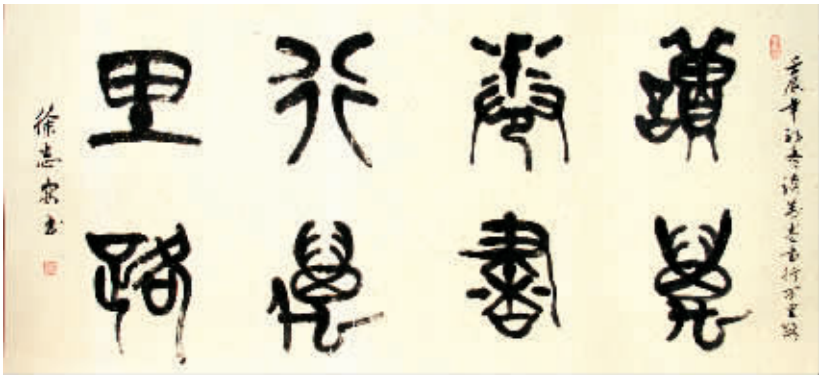 壬辰年讀萬卷書行万里路
讀萬
卷書
行萬
里路
徐志書